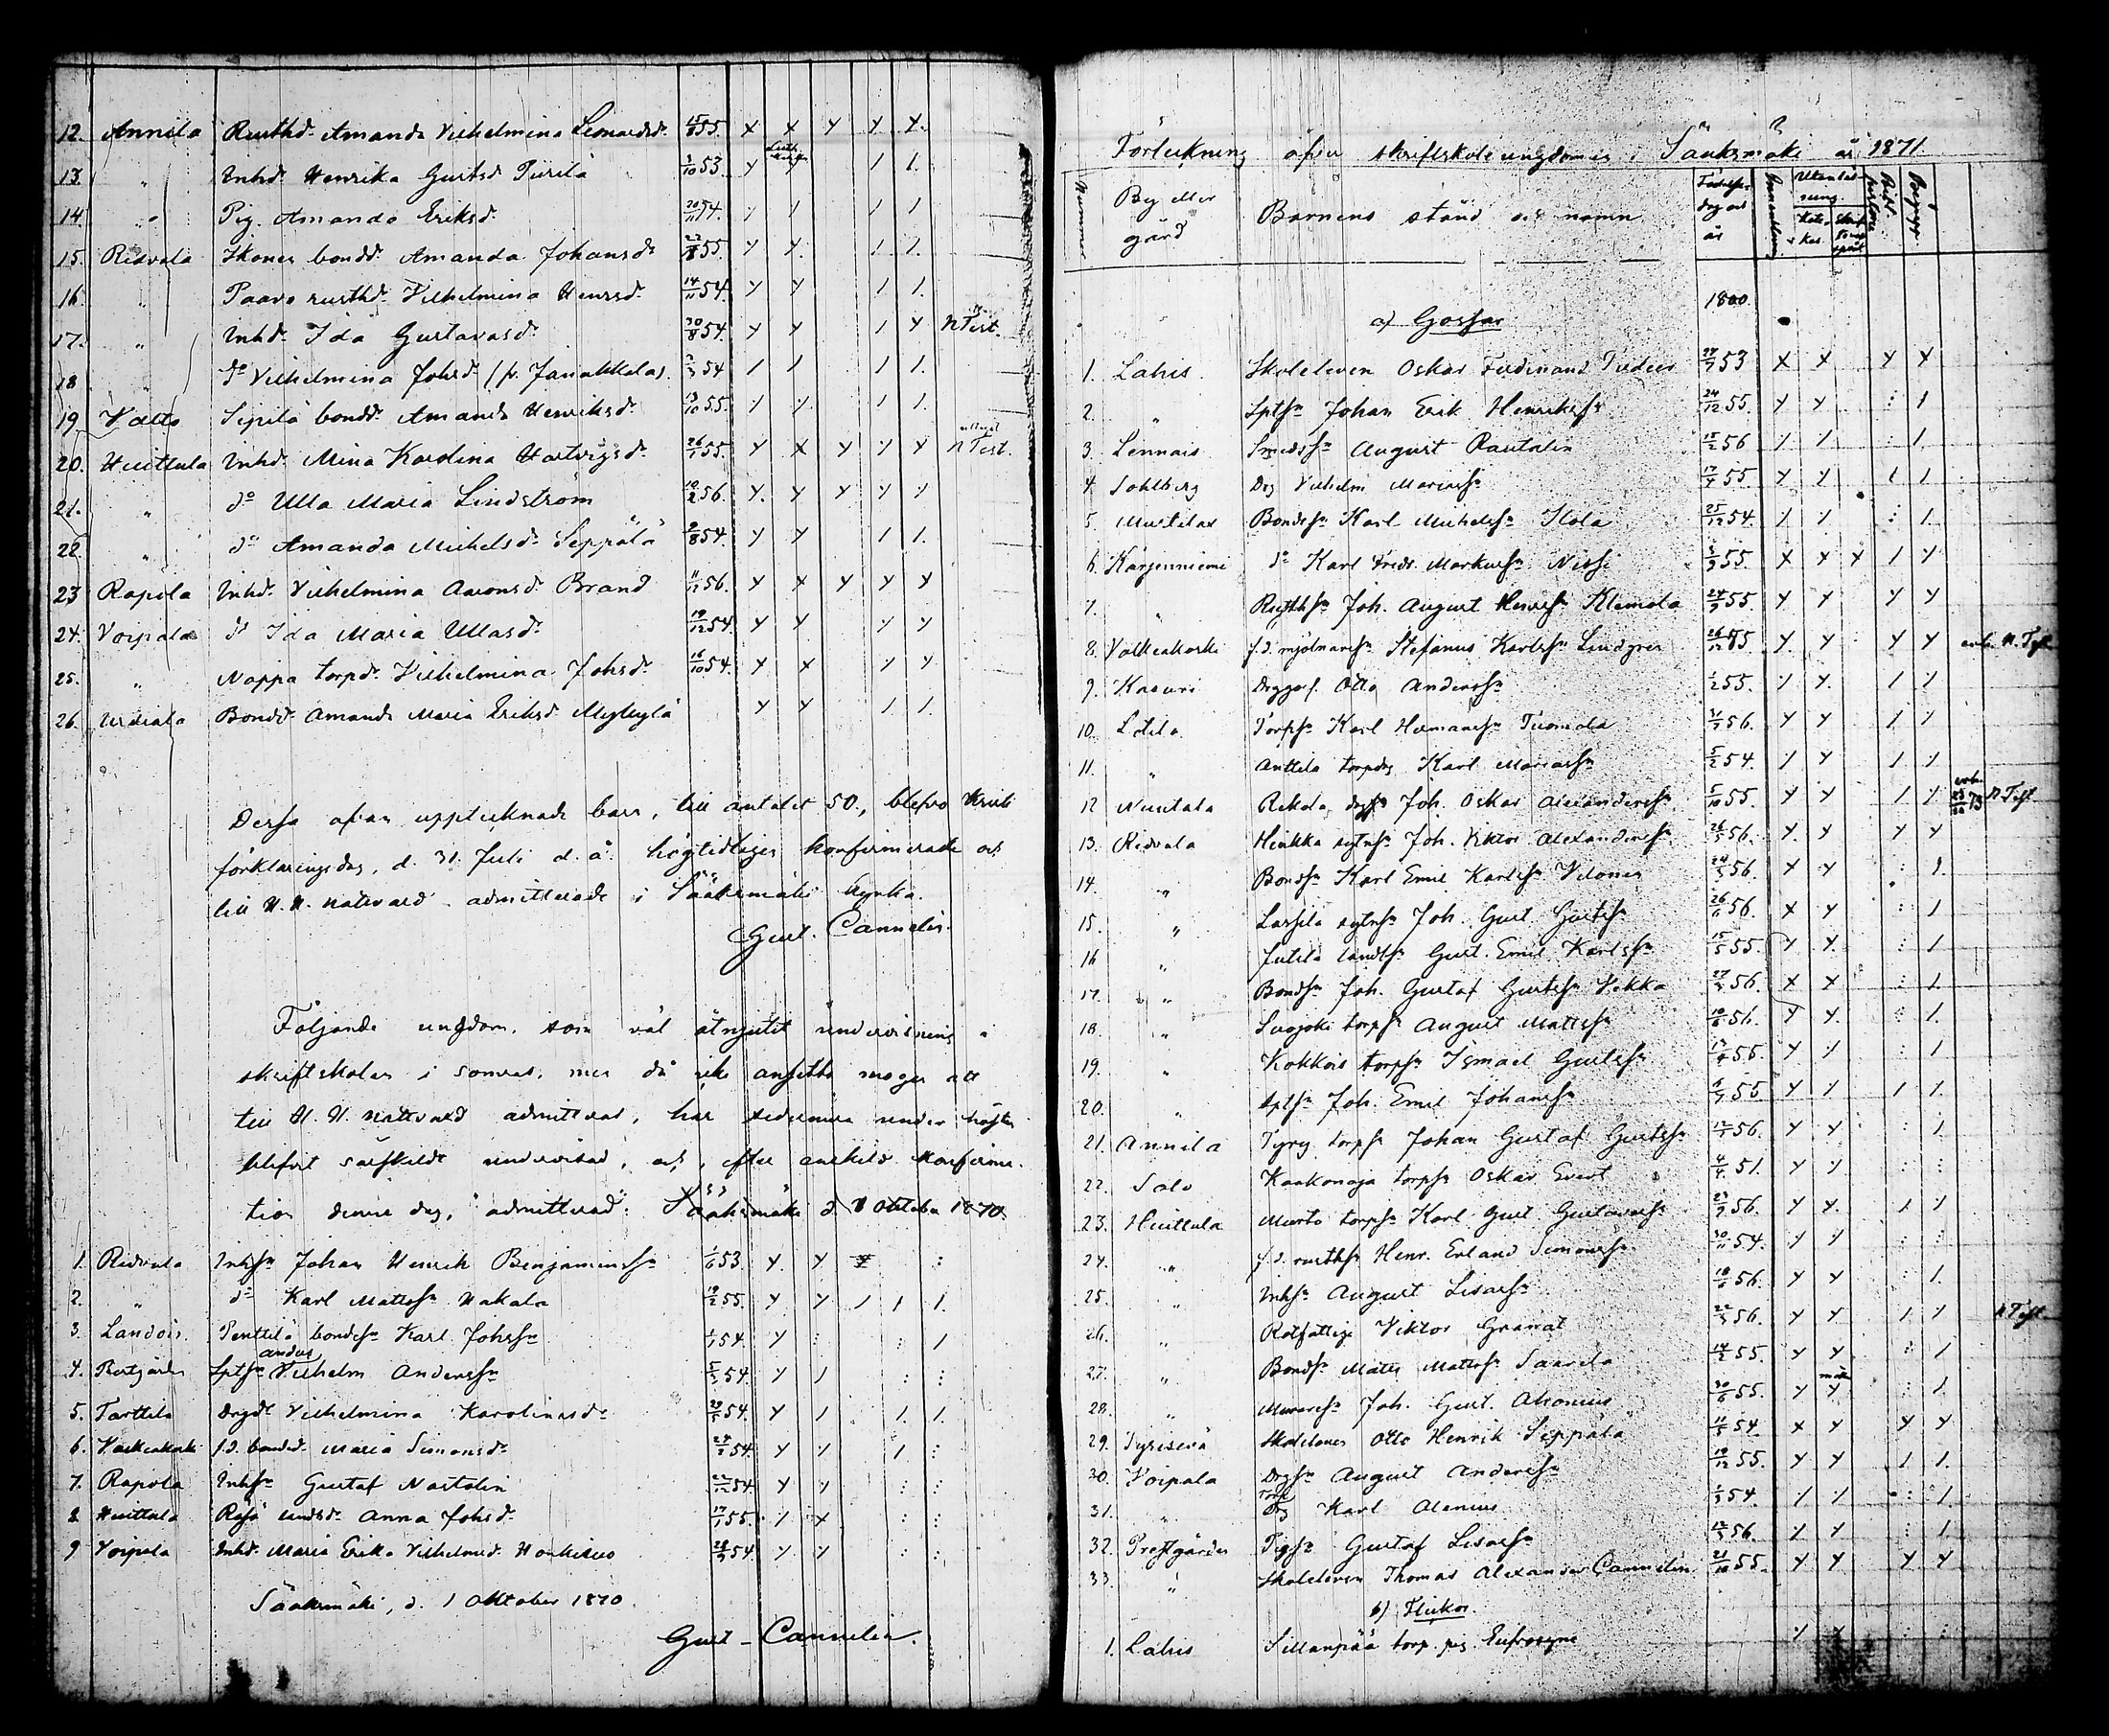 12. Annila Rusthd. Amanda Vilhelmina Leonardsd. 15/8 55. x x y y y.
13. " Inhd. Henrika Gustsd. Purilä 3/10 53 y y / /.
14. " Pig. Amanda Eriksd. 20/11 54. / / / /
15. Ridvala Skones bondd. Amanda Johansd. 55 y y. / /.
16. " Paavo rusthd. Vilhelmina Henrsd. 14/11 54. y y / /.
17. " Inhd. Ida Gustavasd. 30/8 54. y y / y n Test.
18 " do Vilhelmina Johsd. (fr. Janakkala). 54 / / / /.
19 Valto Sipilä bondd. Amanda Henriksd. 13/10 55. / / / /.
20. Huittula Inhd. Mina Karolina Hartvigsd. 26/1 55. y x y y y n Test.
21. " do Ulla Maria Lindström 10/2 56. y. y y y y
22. " do Amanda Michelsd. Seppälä 9/8 54. y y / /.
23 Rapola Inhd. Vilhelmina Aaronsd. Brand 11/12 56. y x y y y
24. Voipala do Ida Maria Ullasd. 19/12 54. y y y y
25. " Noppa torpd. Vilhelmina Johsd. 16/10 54. y x y y
26. Urdiala Bondd. Amanda Maria Eriksd. Myllylä y y / /.
Dessa ofvan upptecknade barn, till antalet 50., blefvo Kristi
förklaringsdag, d. 31. Juli d. å. högtidligen konfirmerade och
till H. H. nattvard admitterade i Sääksmäki kyrka.
Gust. Cannelin.
Följande ungdom, som väl åtnjutit undervisning i
skriftskolan i somras, men då icke ansetts mogen att
till H. H. nattvard admitteras, har sedermera under hösten
blifvit särskildt undervisad, och, efter enskild konfirma-
tion denna dag, admitterad. Sääksmäki d. 1 Oktober 1870.
1. Ridvala Inhsn Johan Henrik Benjaminssn 1/6 53. y. y
2. " do Karl Mattssn Hakala 19/2 55. y. y / / /.
3. Landois Penttilä bondesn Karl Johssn 54. y : : /
4. Prestgården Sptsn Vilhelm Anderssn 54. y / : :
5. Tarttila Drgdr Vilhelmina Karolinasdr 54. y / / /.
6. Valkeakoski f.d. bondd. Maria Simonsdr 54. y y / :
7. Rapola Inhsn Gustaf Nastolin 54. y y : :
8. Huittula Anna Johsd. 17/1 55. / x : :
9 Voipala Inhd. Maria Erika Vilhelmsd. 28/9 54 y y : :
Sääksmäki, d. 1 Oktober 1870.
Gust. Cannelin.
Förteckning öfver skriftskoleungdomen i Sääksmäki år 1871.
Nummer By eller gård Barnens stånd och namn Födelse-dag och år Innanläsning Utanläsning Bibl. historie Begrepp
1800.
a) Gossar
1. Lahis Skoleleven Oskar Ferdinand 53 x x y x
2. " Sptsn Johan Erik Henrikssn 24/12 55. y y : /
3. Lennais Smedssn August Rautalin 15/2 56 / / : /.
4. Sohlberg Drg Vilhelm Mariassn 17/4 55 y y / /
5. Mustilax Bondsn Karl Michelssn Ilola 25/12 54. / / : /.
6. Kärjenniemi do Karl Fredr. Markussn Nissi 55 x x x / y
7. " Rusthsn Joh. August Henrssn Klemola 24/9 55. y y y y
8. Valkeakoski f.d. mjölnarsn Stefanus Karlssn Lindgren 26/12 55 y. y y y n. Test
9. Kasuri Drggos. Otto Anderssn 1/2 55. / y. / /
10. Lotila Torpsn Karl Hermanssn Tuomola 56. y y / /
11. " Anttila torpdrg Karl Mariassn 5/2 54. / y / /
12 Nuutala Rekola drgsn Joh. Oskar Alexanderssn 5/10 55. y y / / 73 n Test
13. Ridvala Heikka sytnsn Joh. Viktor Alexanderssn 26/5 56. y. y y y
14. " Bondsn Karl Emil Karlssn Vilonen 24/5 56. x y : /.
15. " Lassila sytnsn Joh. Gust. Gustssn 26/6 56. x y : /
16 " Jutila landbsn Gust. Emil Karlssn 15/5 55. y y. : /
17. " Bondsn Joh. Gustaf Gustssn Vekka 56. x x : /.
18. " Suojoki torpsn August Mattssn 56. y y. : /.
19. " Kokkois torpsn Ismael Gustssn 56. y y : /
20. " Sptsn Joh. Emil Johanssn 55. y / / /.
21. Annila Pyry torpsn Johan Gustaf Gustssn 56. y y : /
22. Salo Kaakonoja torpsn Oskar Evert 4/4. 51. y y : :
23. Huittula Murto torpsn Karl Gust. Gustavassn 56. y y. / /
24. " f.d. rusthsn Henr. Erland Simonssn 30/11 54. y y : :
25. " Inhsn August Lisassn 56. y y : /.
26. " Rotfattige Viktor Granat 56. y y / / n Test
27. " Bondsn Matts Mattssn Saarela 14/2 55. y y : /
28. " Muraresn Joh. Gust. Ahonius 30/6 55. y y : /.
29. Jyrisevä Skoleleven Otto Henrik Seppälä 54. x y y y
30. Voipala Drgsn August Anderssn 55. y y / /.
31. " Torp. Drg Karl Alenius 54. / / : /.
32. Prestgården Pigsn Gustaf Lisassn 56. y y : /
33. " Skoleleven Thomas Alexander Cannelin 21/10 55. y y y y
b) Flickor.
1. Lahis Sillanpää torp. pig. Eufrosyne / y : :